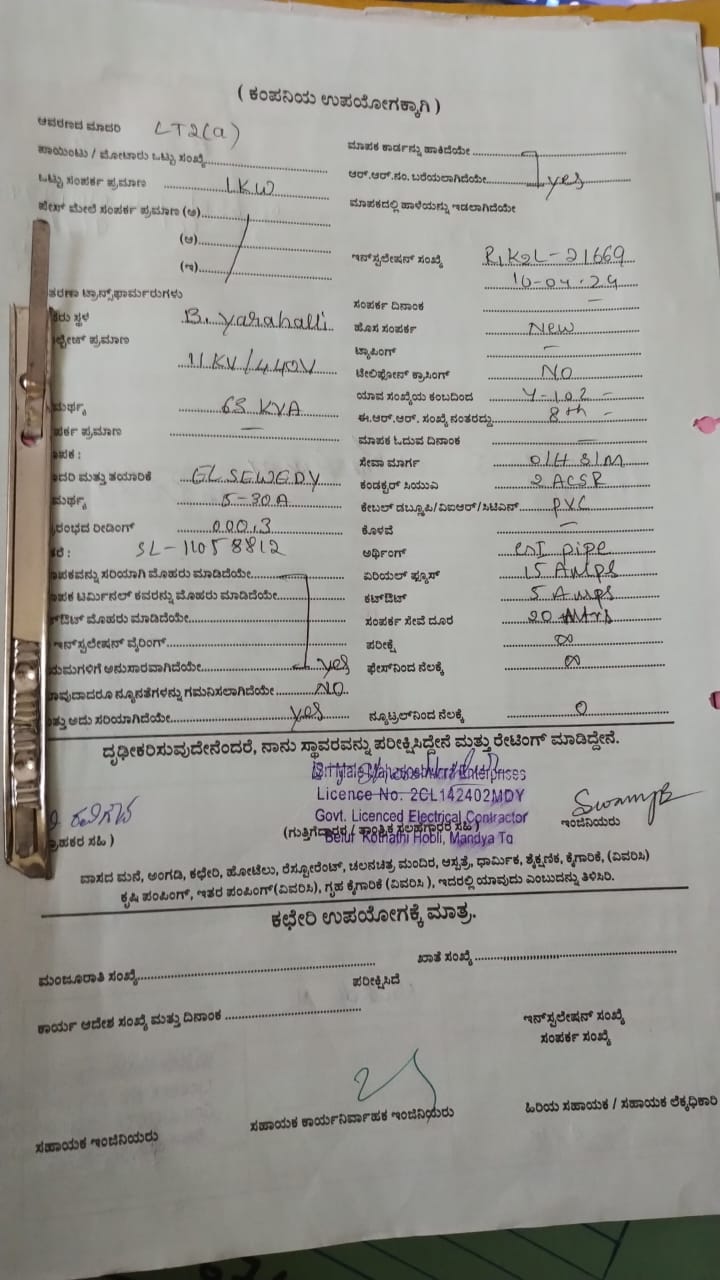 ( ಕಂಪನಿಯ ಉಪಯೋಗಕ್ಕಾಗಿ )
ಆವರಣದ ಮಾದರಿ LT2(a)
ಮಾಪಕ ಕಾರ್ಡನ್ನು ಹಾಕಿದೆಯೇ
ಪಾಯಿಂಟು / ಮೋಟಾರು ಒಟ್ಟು ಸಂಖ್ಯೆ
ಆರ್.ಆರ್.ನಂ. ಬರೆಯಲಾಗಿದೆಯೇ yes
ಒಟ್ಟು ಸಂಪರ್ಕ ಪ್ರಮಾಣ 1KW
ಮಾಪಕದಲ್ಲಿ ಹಾಳೆಯನ್ನು ಇಡಲಾಗಿದೆಯೇ
ಫೇಸ್ ಮೇಲೆ ಸಂಪರ್ಕ ಪ್ರಮಾಣ (ಅ)
(ಆ)
(ಇ)
ಇನ್‌ಸ್ಟಲೇಷನ್ ಸಂಖ್ಯೆ R1K2L-21669
10-04-24
ತರಣಾ ಟ್ರಾನ್ಸ್‌ಫಾರ್ಮರುಗಳು
ಸಂಪರ್ಕ ದಿನಾಂಕ –
ಸ್ಥಳ B. yarahalli
ಹೊಸ ಸಂಪರ್ಕ New
ಪ್ರಮಾಣ
11KV/440V
ಟ್ಯಾಪಿಂಗ್ –
ಟೆಲಿಫೋನ್ ಕ್ರಾಸಿಂಗ್ NO
ಯಾವ ಸಂಖ್ಯೆಯ ಕಂಬದಿಂದ Y-102 –
63 KVA
ಈ.ಆರ್.ಆರ್. ಸಂಖ್ಯೆ ನಂತರದ್ದು 8th –
ಪರ್ಕ ಪ್ರಮಾಣ –
ಮಾಪಕ ಓದುವ ದಿನಾಂಕ –
ಪಕ :
ಸೇವಾ ಮಾರ್ಗ O/H S/M
ದರಿ ಮತ್ತು ತಯಾರಿಕೆ ELSEWEDY
ಕಂಡಕ್ಟರ್ ಸಿಯುಎ 2 ACSR
ಮರ್ಥ್ಯ 5-30A
ಕೇಬಲ್ ಡಬ್ಲ್ಯೂಪಿ/ವಿಐಆರ್/ಸಿಟಿಎಸ್ PVC
ರಂಭದ ರೀಡಿಂಗ್ 000.3
ಕೊಳವೆ –
SL-11058812
ಅರ್ಥಿಂಗ್ pipe
ಪಕವನ್ನು ಸರಿಯಾಗಿ ಮೊಹರು ಮಾಡಿದೆಯೇ
ಏರಿಯಲ್ ಫ್ಯೂಸ್ 15 Amps
ಪಕ ಟರ್ಮಿನಲ್ ಕವರನ್ನು ಮೊಹರು ಮಾಡಿದೆಯೇ
ಕಟ್‌ಔಟ್ 5 Amps
ಮೊಹರು ಮಾಡಿದೆಯೇ
ಸಂಪರ್ಕ ಸೇವೆ ದೂರ 20 Mtrs
ಇನ್‌ಸ್ಟಲೇಷನ್ ವೈರಿಂಗ್
ಪರೀಕ್ಷೆ ∞
ಯಮಗಳಿಗೆ ಅನುಸಾರವಾಗಿದೆಯೇ yes
ಫೇಸ್‌ನಿಂದ ನೆಲಕ್ಕೆ ∞
ವುದಾದರೂ ನ್ಯೂನತೆಗಳನ್ನು ಗಮನಿಸಲಾಗಿದೆಯೇ NO
ತ್ತು ಅದು ಸರಿಯಾಗಿದೆಯೇ yes
ನ್ಯೂಟ್ರಲ್‌ನಿಂದ ನೆಲಕ್ಕೆ 0
ದೃಢೀಕರಿಸುವುದೇನೆಂದರೆ, ನಾನು ಸ್ಥಾವರವನ್ನು ಪರೀಕ್ಷಿಸಿದ್ದೇನೆ ಮತ್ತು ರೇಟಿಂಗ್ ಮಾಡಿದ್ದೇನೆ.
Sri Male Mahadeshwara Enterprises
Licence No. 2CL142402MDY
Govt. Licenced Electrical Contractor
Belur Kothathi Hobli, Mandya Tq
ರಾಹಕರ ಸಹಿ )
(ಗುತ್ತಿಗೆದಾರರ / ತಾಂತ್ರಿಕ ಸಲಹಗಾರರ ಸಹಿ )
ಇಂಜಿನಿಯರು
ವಾಸದ ಮನೆ, ಅಂಗಡಿ, ಕಛೇರಿ, ಹೋಟೆಲು, ರೆಸ್ಟೋರೆಂಟ್, ಚಲನಚಿತ್ರ ಮಂದಿರ, ಆಸ್ಪತ್ರೆ, ಧಾರ್ಮಿಕ, ಶೈಕ್ಷಣಿಕ, ಕೈಗಾರಿಕೆ, (ವಿವರಿಸಿ)
ಕೃಷಿ ಪಂಪಿಂಗ್, ಇತರ ಪಂಪಿಂಗ್(ವಿವರಿಸಿ), ಗೃಹ ಕೈಗಾರಿಕೆ (ವಿವರಿಸಿ ), ಇದರಲ್ಲಿ ಯಾವುದು ಎಂಬುದನ್ನು ತಿಳಿಸಿರಿ.
ಕಛೇರಿ ಉಪಯೋಗಕ್ಕೆ ಮಾತ್ರ.
ಮಂಜೂರಾತಿ ಸಂಖ್ಯೆ
ಖಾತೆ ಸಂಖ್ಯೆ
ಪರೀಕ್ಷಿಸಿದೆ
ಕಾರ್ಯ ಆದೇಶ ಸಂಖ್ಯೆ ಮತ್ತು ದಿನಾಂಕ
ಇನ್‌ಸ್ಟಲೇಷನ್ ಸಂಖ್ಯೆ
ಸಂಪರ್ಕ ಸಂಖ್ಯೆ
ಸಹಾಯಕ ಇಂಜಿನಿಯರು
ಸಹಾಯಕ ಕಾರ್ಯನಿರ್ವಾಹಕ ಇಂಜಿನಿಯರು
ಹಿರಿಯ ಸಹಾಯಕ / ಸಹಾಯಕ ಲೆಕ್ಕಾಧಿಕಾರಿ